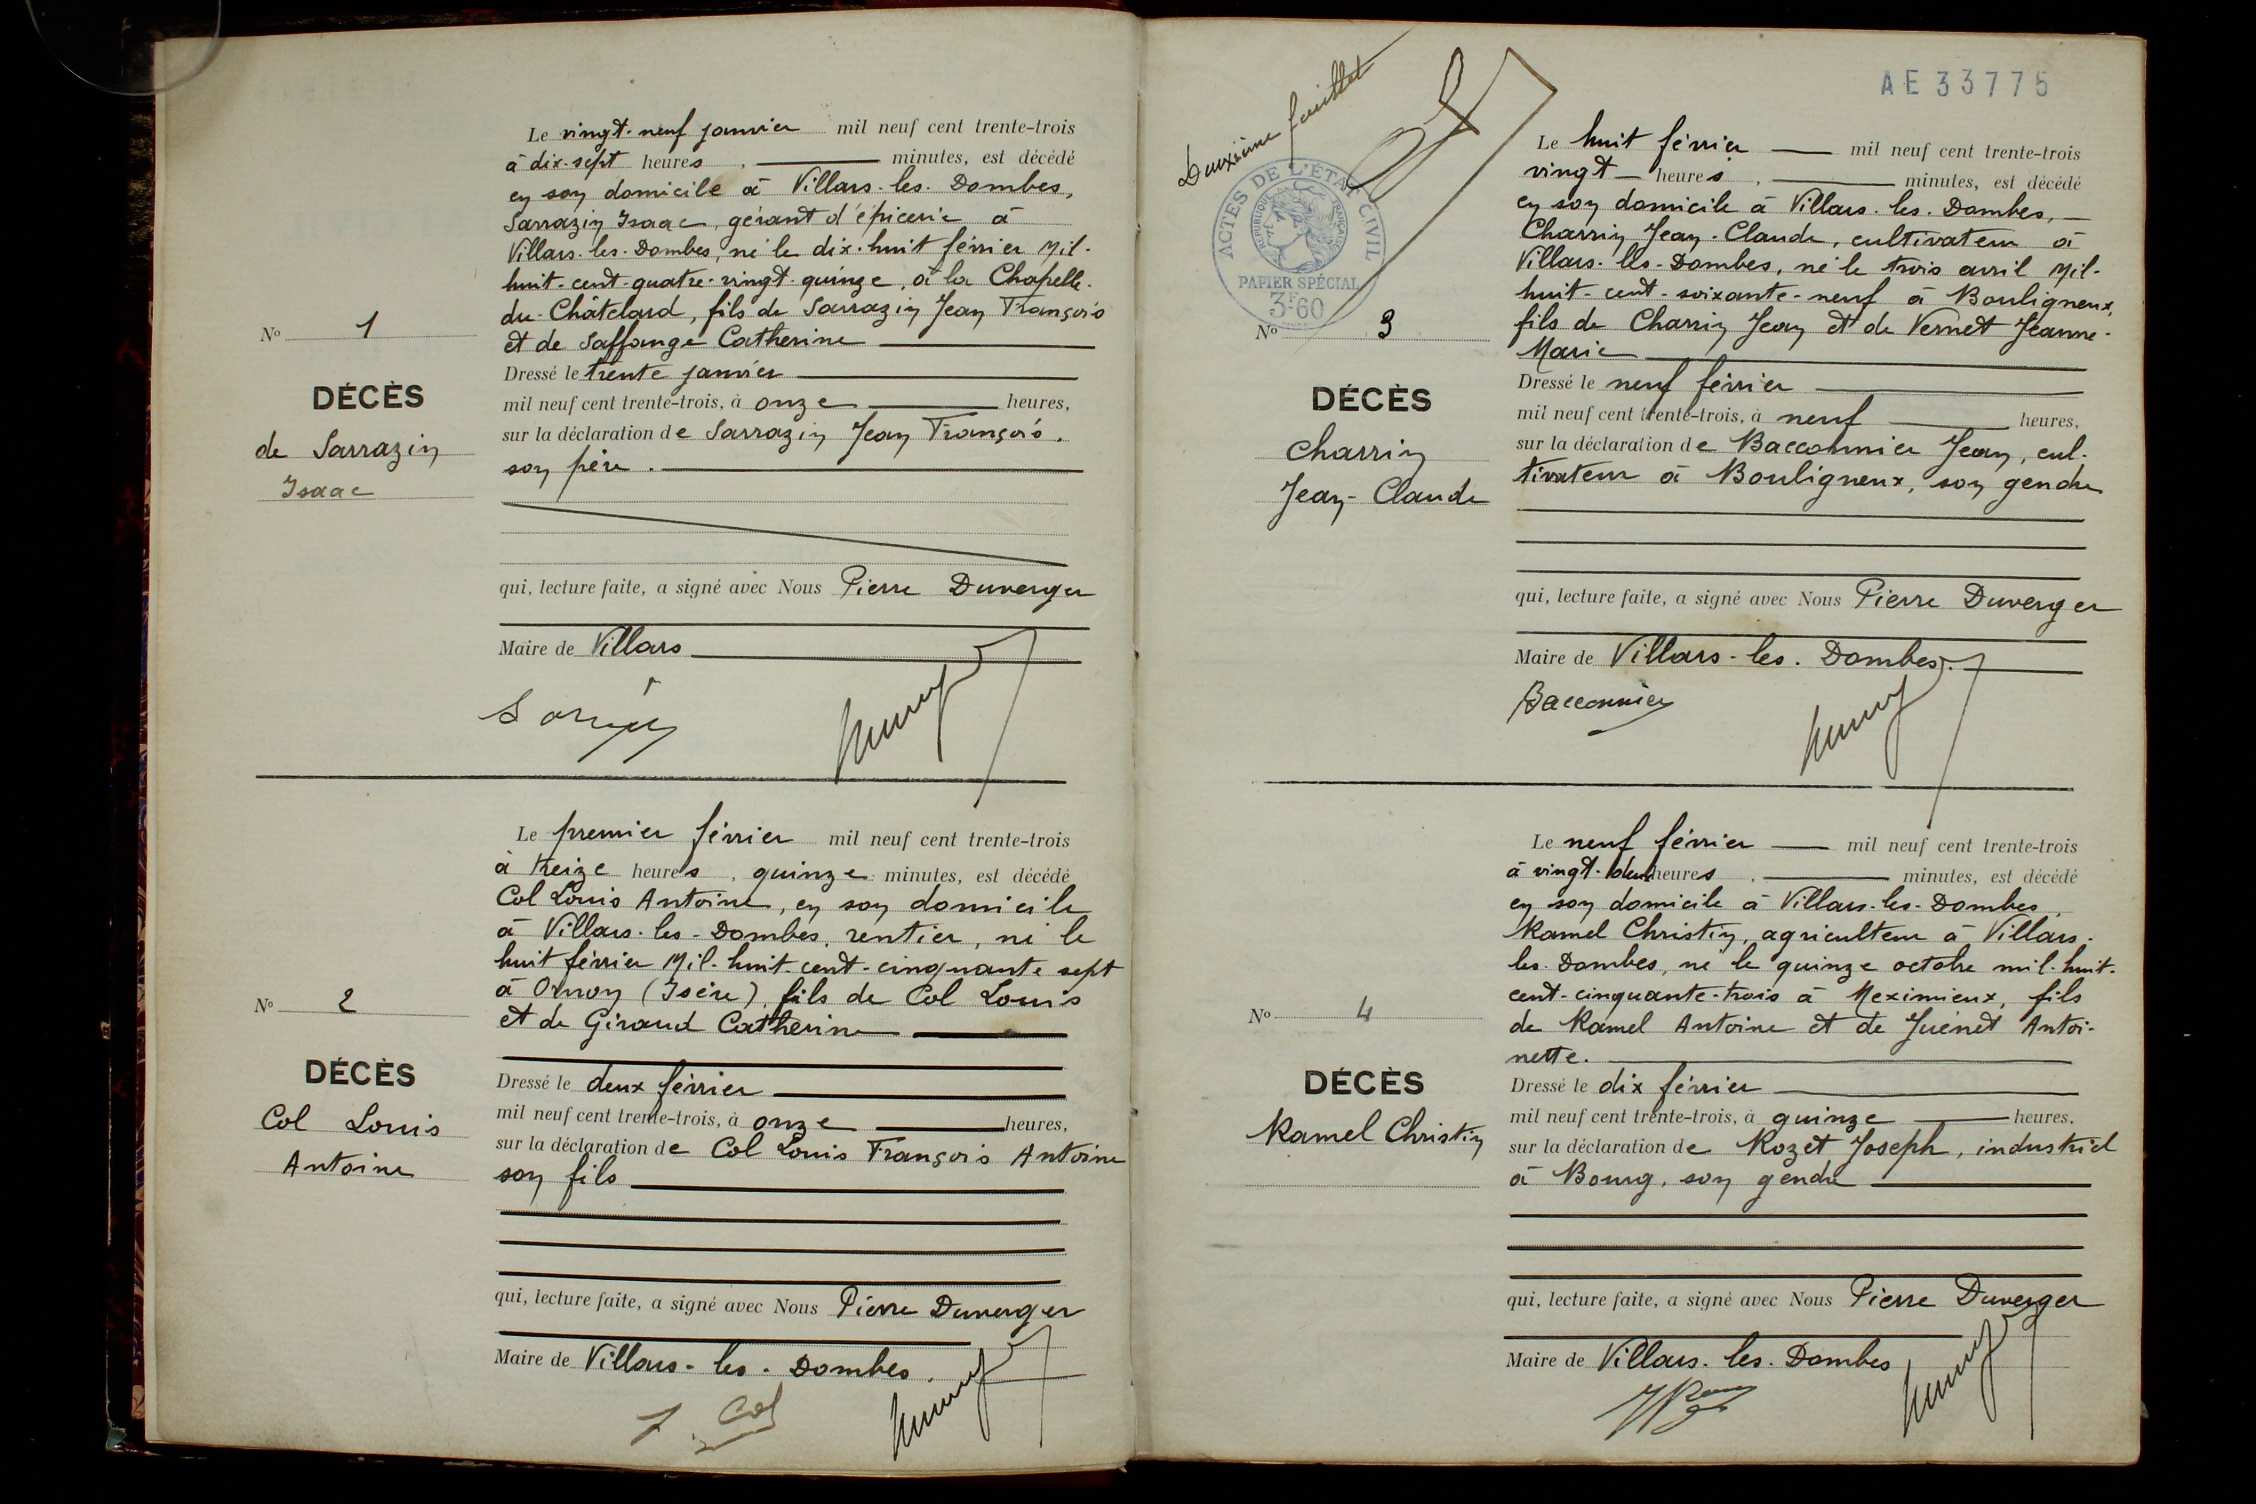 Le vingt-neuf janvier mil neuf cent trente-trois
à dix-sept heures, minutes, est décédé
en son domicile à Villars-les-Dombes,
Sarrazin Isaac, gérant d'épicerie à
Villars-les-Dombes, né le dix-huit février mil-
huit-cent-quatre-vingt-quinze, à la Chapelle-
du-Châtelard, fils de Sarrazin Jean François
et de Saffange Catherine
Dressé le trente janvier
mil neuf cent trente-trois, à onze heures,
sur la déclaration de Sarrazin Jean François,
son père.
qui, lecture faite, a signé avec Nous Pierre Duverger
Maire de Villars
No 1
DÉCÈS
de Sarrazin
Isaac
Le premier février mil neuf cent trente-trois
à treize heures, quinze minutes, est décédé
Col Louis Antoine, en son domicile
à Villars-les-Dombes, rentier, né le
huit février mil-huit-cent-cinquante sept
à Ornon (Isère), fils de Col Louis
et de Giraud Catherine
Dressé le deux février
mil neuf cent trente-trois, à onze heures,
sur la déclaration de Col Louis François Antoine
son fils
qui, lecture faite, a signé avec Nous Pierre Duverger
Maire de Villars-les-Dombes.
Col
No 2
DÉCÈS
Col Louis
Antoine
Deuxième feuillet
AE 33775
ACTES DE L'ÉTAT CIVIL
RÉPUBLIQUE FRANÇAISE
PAPIER SPÉCIAL
3F60
Le huit février mil neuf cent trente-trois
vingt heures, minutes, est décédé
en son domicile à Villars-les-Dombes,
Charrin Jean-Claude, cultivateur à
Villars-les-Dombes, né le trois avril mil-
huit-cent-soixante-neuf à Bouligneux,
fils de Charrin Jean et de Vernet Jeanne-
Marie
Dressé le neuf février
mil neuf cent trente-trois, à neuf heures,
sur la déclaration de Bacconnier Jean, cul-
tivateur à Bouligneux, son gendre
qui, lecture faite, a signé avec Nous Pierre Duverger
Maire de Villars-les-Dombes.
Bacconnier
No 3
DÉCÈS
Charrin
Jean-Claude
Le neuf février mil neuf cent trente-trois
à vingt-deux heures, minutes, est décédé
en son domicile à Villars-les-Dombes,
Ramel Christin, agriculteur à Villars-
les-Dombes, né le quinze octobre mil-huit-
cent-cinquante-trois à Meximieux, fils
de Ramel Antoine et de Juénet Antoi-
nette.
Dressé le dix février
mil neuf cent trente-trois, à quinze heures,
sur la déclaration de Rozet Joseph, industriel
à Bourg, son gendre
qui, lecture faite, a signé avec Nous Pierre Duverger
Maire de Villars-les-Dombes
No 4
DÉCÈS
Ramel Christin